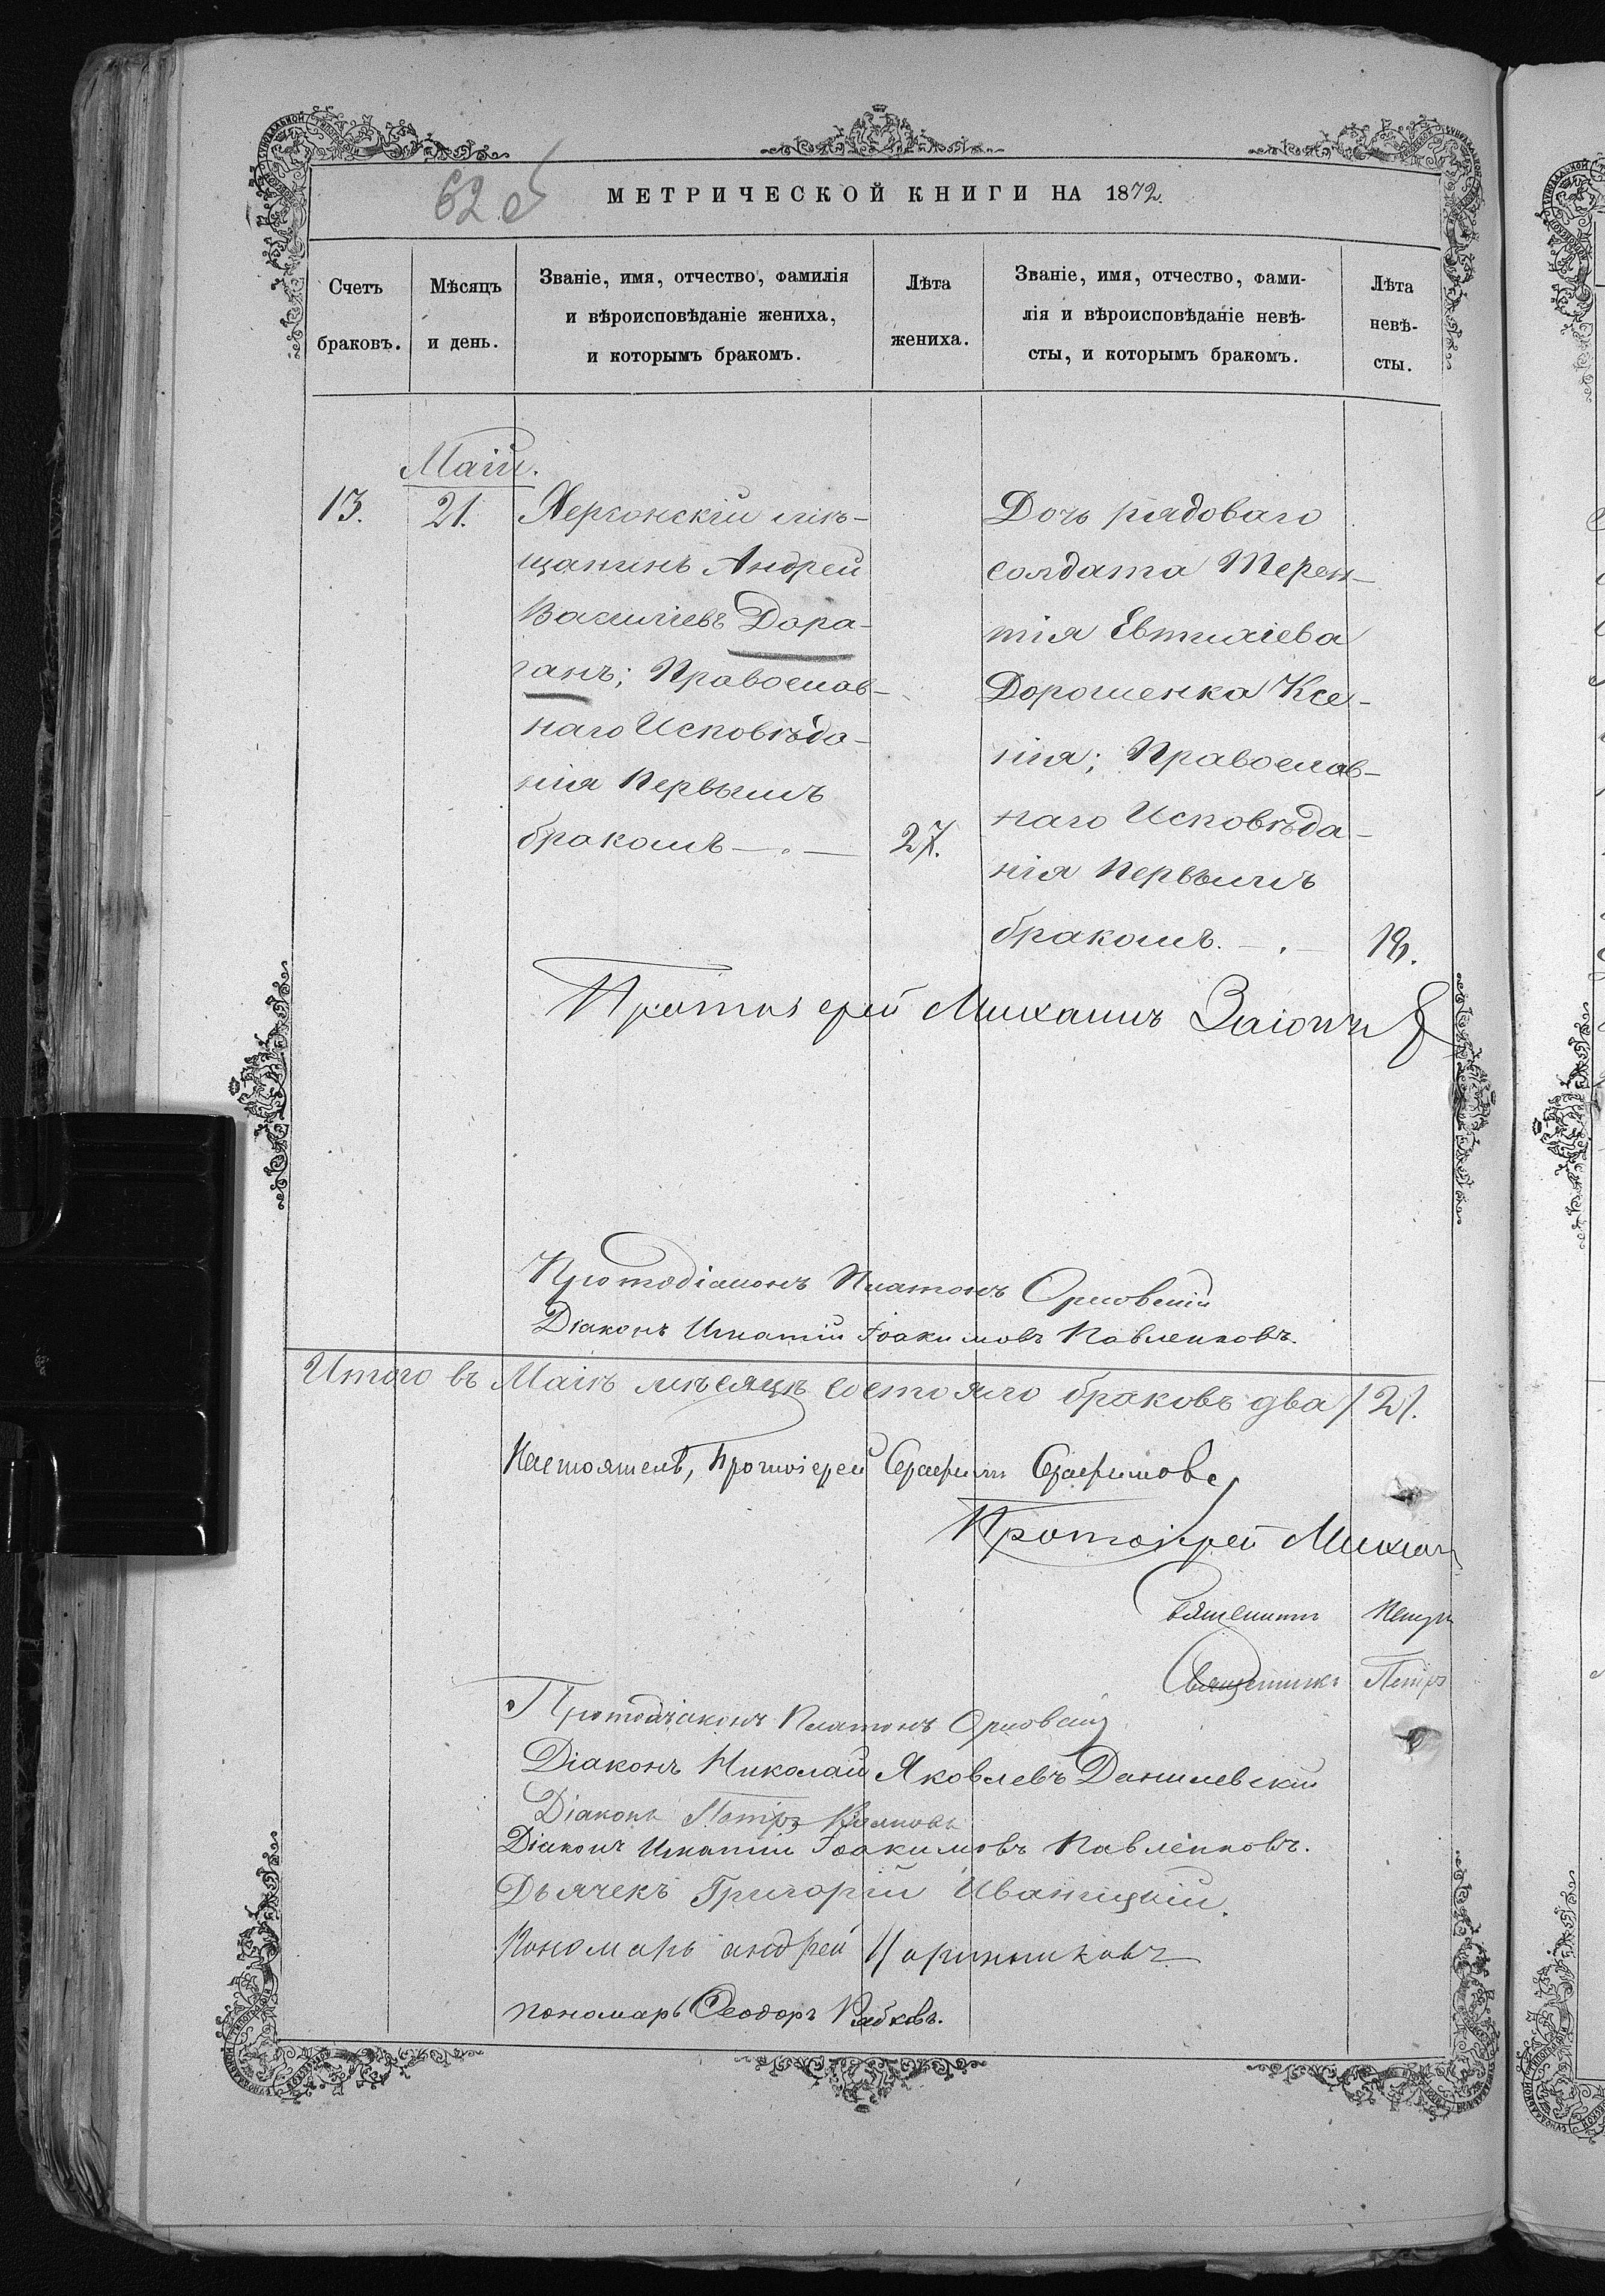 62 об
МЕТРИЧЕСКОЙ КНИГИ НА 1872.
Счетъ браковъ.
Мѣсяцъ и день.
Званіе, имя, отчество, фамилія
и вѣроисповѣданіе жениха,
и которымъ бракомъ.
Лѣта
жениха.
Званіе, имя, отчество, фами-
лія и вѣроисповѣданіе невѣ-
сты, и которымъ бракомъ.
Лѣта
невѣ-
сты.
Маій.
13.
21.
Херсонскій мѣ-
щанинъ Андрей
Василіевъ Дора-
ганъ; Православ-
наго Исповѣда-
нія Первымъ
бракомъ
27.
Дочь рядоваго
солдата Терен-
тія Евтихіева
Дорошенка Ксе-
нія; Православ-
наго Исповѣда-
нія Первымъ
бракомъ.
18.
Протоіерей Михаилъ
Протодіаконъ Платонъ Орловскій
Діаконъ Игнатій Іоакимовъ Павленковъ.
Итого въ Маіѣ мѣсяцѣ состояло браковъ два /2/.
Настоятель, Протоіерей Серафимъ Серафимовъ
Протоіерей Михаи
Священникъ
Священникъ Петръ
Протодіаконъ Платонъ Орловскій
Діаконъ Николай Яковлевъ Данилевскій
Діаконъ Петръ
Діаконъ Игнатій Іоакимовъ Павленковъ.
Дьячекъ Григорій Иваницкій.
Пономарь андрей
пономарь Ѳеодоръ Рябковъ.